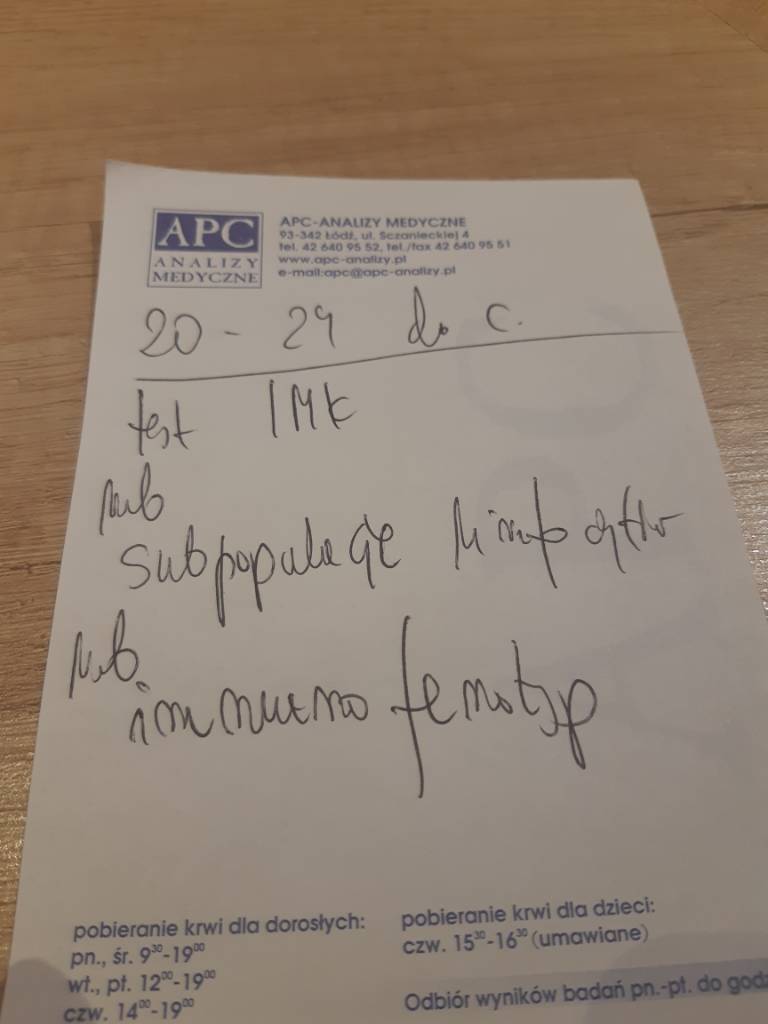 APC
ANALIZY
MEDYCZNE
APC-ANALIZY MEDYCZNE
93-342 Łódź, ul. Sczanieckiej 4
tel. 42 640 95 52, tel./fax 42 640 95 51
www.apc-analizy.pl
e-mail:apc@apc-analizy.pl
20 - 24 d. c.
test IMK
lub
subpopulacje limfocytów
lub
immuno fenotyp
pobieranie krwi dla dorosłych:
pn., śr. 9³⁰-19⁰⁰
wt., pt. 12⁰⁰-19⁰⁰
czw. 14⁰⁰-19⁰⁰
pobieranie krwi dla dzieci:
czw. 15³⁰-16³⁰ (umawiane)
Odbiór wyników badań pn.-pt. do godz